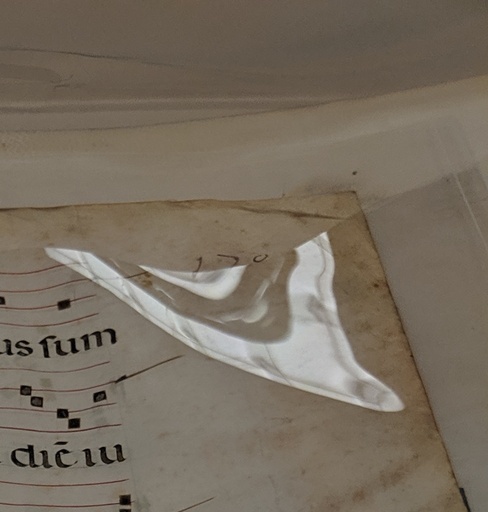 170
us sum
dic̄ iu